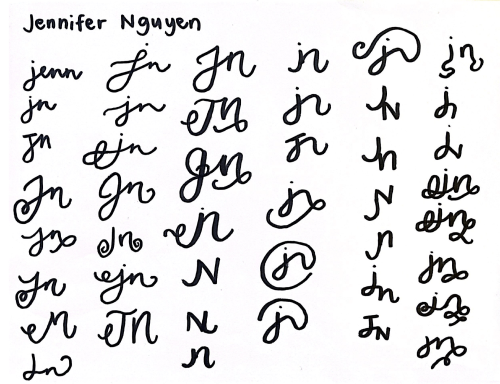 Jennifer Nguyen
jenn Jn Jn jn jn jn
jn jn Jn jn jN jn
Jn jn Jn Jn jn jn
Jn Jn jn jn jn
jn Jn jn jn jn
Jn jn jn jn jn
JN jn JN jn
Jn jn jn